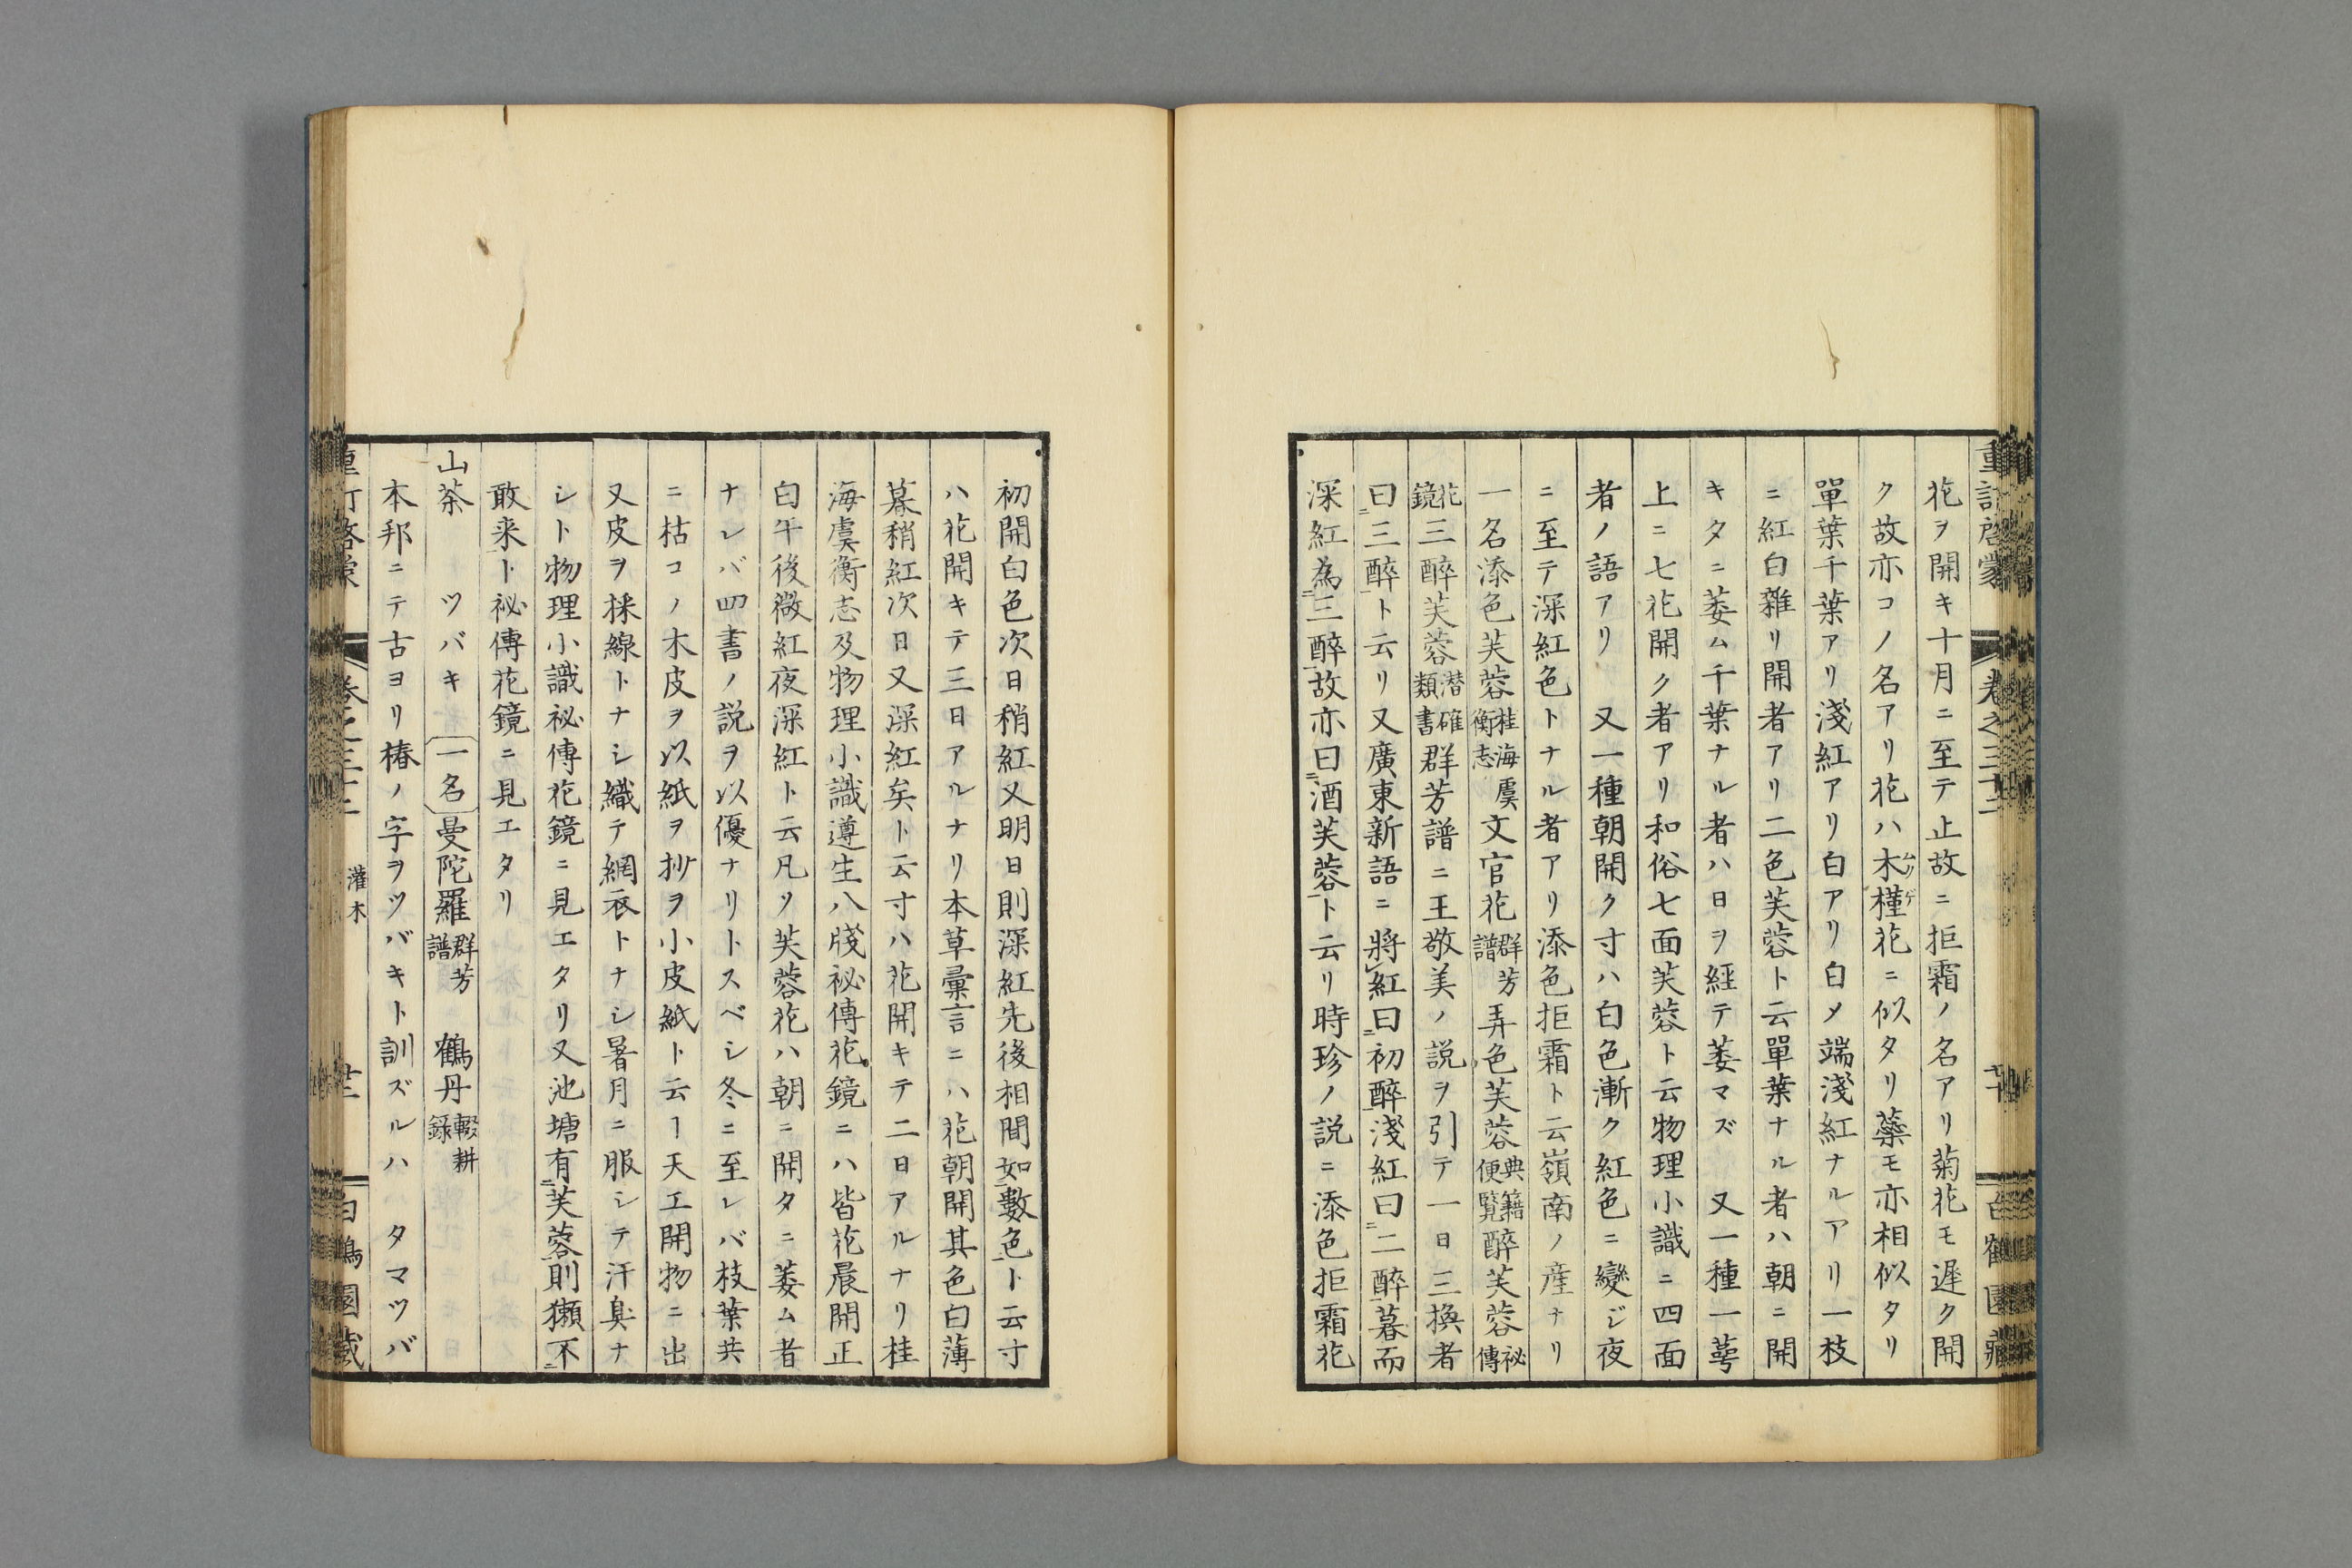 重訂啓蒙 卷之三十二 二十 白鶴園藏
花ヲ開キ十月ニ至テ止故ニ拒霜ノ名アリ菊花モ遲ク開
ク故亦コノ名アリ花ハ木槿花ニ似タリ蘂モ亦相似タリ
單葉千葉アリ淺紅アリ白アリ白メ端淺紅ナルアリ一枝
ニ紅白雜リ開者アリ二色芙蓉ト云單葉ナル者ハ朝ニ開
キタニ萎ム千葉ナル者ハ日ヲ經テ萎マズ 又一種一萼
上ニ七花開ク者アリ和俗七面芙蓉ト云物理小識ニ四面
者ノ語アリ 又一種朝開ク寸ハ白色漸ク紅色ニ變ジ夜
ニ至テ深紅色トナル者アリ添色拒霜ト云嶺南ノ産ナリ
一名添色芙蓉桂海虞衡志文官花群芳譜弄色芙蓉典籍便覽醉芙蓉祕傳
花鏡三醉芙蓉潛確類書群芳譜ニ王敬美ノ説ヲ引テ一日三換者
曰三醉ト云リ又廣東新語ニ將紅曰初醉淺紅曰二醉暮而
深紅為三醉故亦曰酒芙蓉ト云リ時珍ノ説ニ添色拒霜花
初開白色次日稍紅又明日則深紅先後相間如數色ト云寸
ハ花開キテ三日アルナリ本草彙言ニハ花朝開其色白薄
暮稍紅次日又深紅矣ト云寸ハ花開キテ二日アルナリ桂
海虞衡志及物理小識遵生八牋祕傳花鏡ニハ皆花晨開正
白午後微紅夜深紅ト云凡ソ芙蓉花ハ朝ニ開タニ萎ム者
ナレバ四書ノ説ヲ以優ナリトスベシ冬ニ至レバ枝葉共
ニ枯コノ木皮ヲ以紙ヲ抄ヲ小皮紙ト云ヿ天工開物ニ出
又皮ヲ採線トナシ織テ網衣トナシ暑月ニ服シテ汗臭ナ
シト物理小識祕傳花鏡ニ見エタリ又池塘有芙蓉則獺不
敢来ト祕傳花鏡ニ見エタリ
山茶 ツバキ 一名 曼陀羅群芳譜 鶴丹輟耕錄
本邦ニテ古ヨリ椿ノ字ヲツバキト訓ズルハタマツバ
重訂啓蒙 卷之三十二 灌木 廿一 白鶴園藏